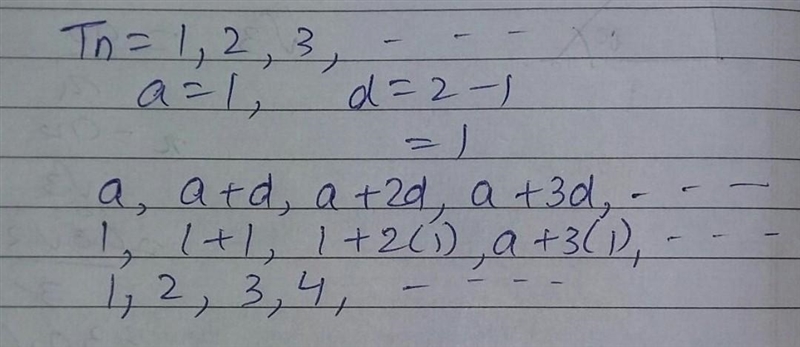 Tn = 1, 2, 3, - - -
a = 1, d = 2 - 1
= 1
a, a + d, a + 2d, a + 3d, - - -
1, 1 + 1, 1 + 2(1), a + 3(1), - - -
1, 2, 3, 4, - - - -